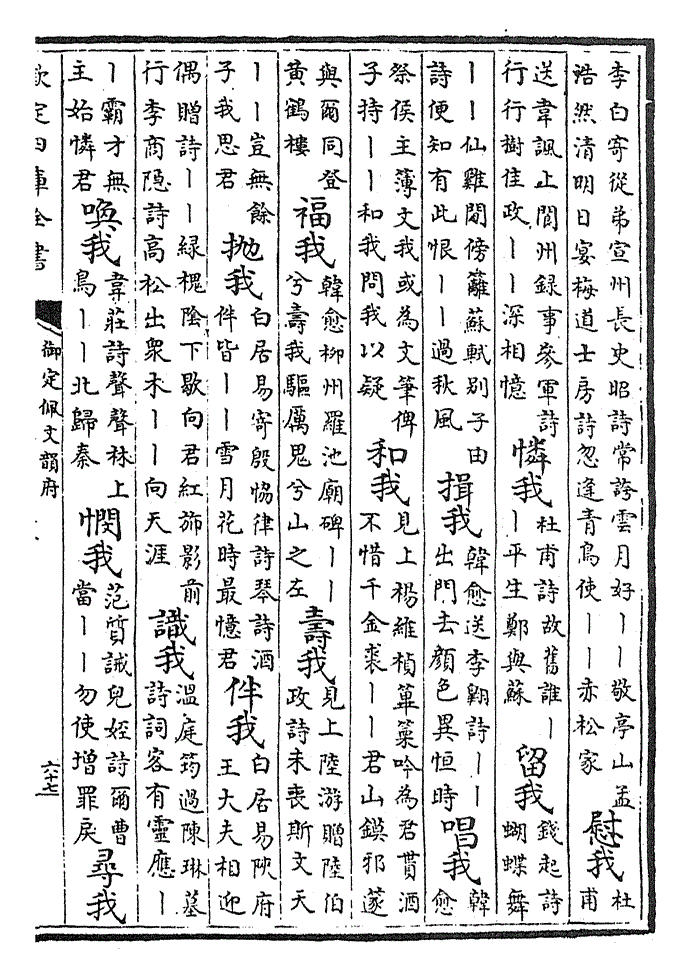 李白寄從弟宣州長史昭詩常誇雲月好丨丨敬亭山孟浩然清明日宴梅道士房詩忽逢青鳥使丨丨赤松家 慰我 杜甫
送韋諷止閬州錄事參軍詩行行樹佳政丨丨深相憶 憐我 杜甫詩故舊誰丨丨平生鄭與蘇 留我 錢起詩蝴蝶舞
丨丨仙雞閒傍籬蘇軾別子由詩便知有此恨丨丨過秋風 揖我 韓愈送李翺詩丨丨出門去顏色異恒時 唱我 韓愈
祭侯主簿文我或為文筆俾子持丨丨和我問我以疑 和我 見上楊維楨篳篥吟為君貰酒不惜千金裘丨丨君山鏌邪篴
與爾同登黃鶴樓 福我 韓愈柳州羅池廟碑丨丨兮壽我驅厲鬼兮山之左 壽我 見上陸游贈陸伯政詩未喪斯文天
丨丨豈無餘子我思君 拋我 白居易寄殷協律詩琴詩酒伴皆丨丨雪月花時最憶君 伴我 白居易陝府王大夫相迎
偶贈詩丨丨綠槐陰下歇向君紅旆影前行李商隱詩高松出衆木丨丨向天涯 識我 溫庭筠過陳琳墓詩詞客有靈應丨
丨霸才無主始憐君 喚我 韋莊詩聲聲林上鳥丨丨北歸秦 憫我 范質誡兒姪詩爾曹當丨丨勿使增罪戾 尋我
欽定四庫全書
御定佩文韻府
六十七